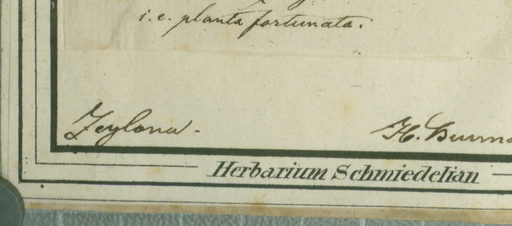 i.e. planta fortunata.
Zeylona.
H. Burm
Herbarium Schmiedelian